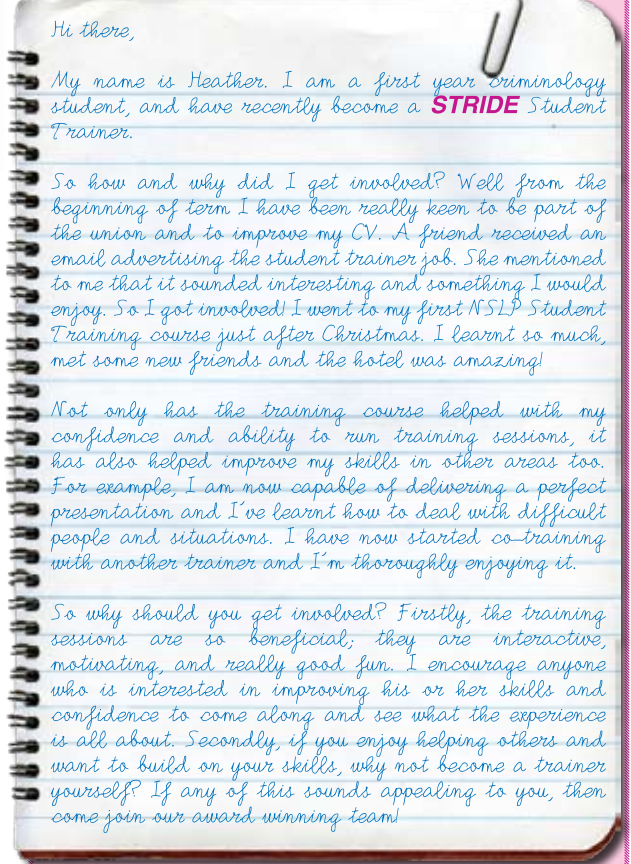 Hi there,
My name is Heather. I am a first year criminology
student, and have recently become a STRIDE Student
Trainer.
So how and why did I get involved? Well from the
beginning of term I have been really keen to be part of
the union and to improve my CV. A friend received an
email advertising the student trainer job. She mentioned
to me that it sounded interesting and something I would
enjoy. So I got involved! I went to my first NSLP Student
Training course just after Christmas. I learnt so much,
met some new friends and the hotel was amazing!
Not only has the training course helped with my
confidence and ability to run training sessions, it
has also helped improve my skills in other areas too.
For example, I am now capable of delivering a perfect
presentation and I´ve learnt how to deal with difficult
people and situations. I have now started co-training
with another trainer and I´m thoroughly enjoying it.
So why should you get involved? Firstly, the training
sessions are so beneficial; they are interactive,
motivating, and really good fun. I encourage anyone
who is interested in improving his or her skills and
confidence to come along and see what the experience
is all about. Secondly, if you enjoy helping others and
want to build on your skills, why not become a trainer
yourself? If any of this sounds appealing to you, then
come join our award winning team!